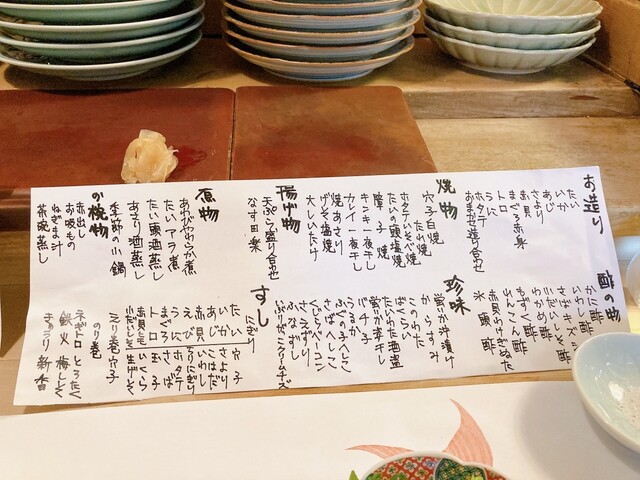 お造り
たい
いか
あじ
さより
赤貝
まぐろ赤身
トロ
うに
ホタテ
おまかせ造り合せ
焼物
穴子白焼
たれ焼
ホタテいそべ焼
たいの頭塩焼
障子焼
キンキ一夜干
カレイ一夜干
焼あさり
げそ塩焼
大しいたけ
揚げ物
天ぷら盛り合せ
なす田楽
煮物
あわびやわらか煮
たいアラ煮
たい頭酒蒸し
あさり酒蒸し
季節の小鍋
お椀物
赤出し
お吸もの
ねぎま汁
茶碗蒸し
酢の物
かに酢
いわし酢
さばキズシ
小だいしそ酢
わかめ酢
もずく酢
れんこん酢
赤貝わけぎぬた
氷頭酢
珍味
蛍いか沖漬け
からすみ
このわた
ばくらい
たいわた酒盗
蛍いか素干
バチコ
うるか
ふぐの子へしこ
さばへしこ
くじらベーコン
さえずり
ふなずし
いぶりがっこクリームチーズ
すし
にぎり
たい
いか
あじ
赤貝
えび
まぐろ
うに
トロ
赤貝ひも
小だいしそ
穴子
こはだ
さより
いわし
ホタテ
さば
玉子
いくら
生げそ
えり巻穴子
のり巻
ネギトロ
とろたく
鉄火
梅しそ
きゅうり
新香